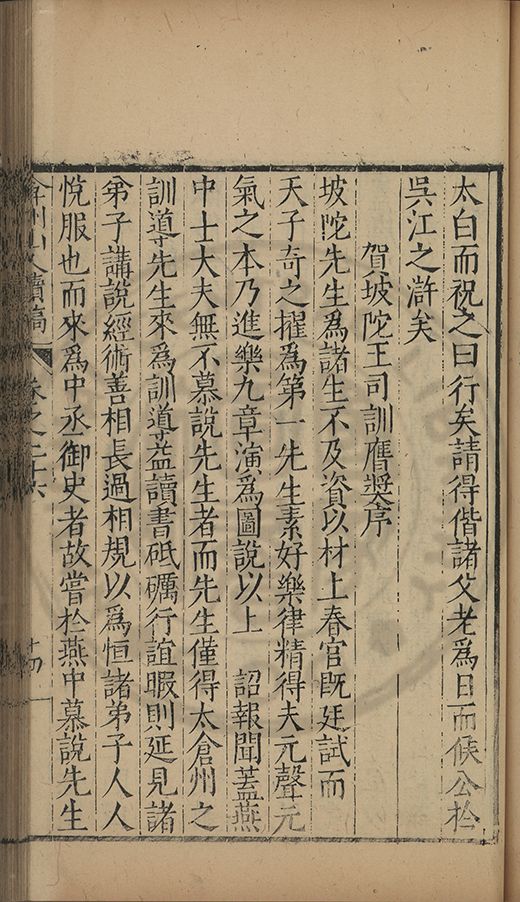 太白而祝之曰行矣請得偕諸父老爲日而候公於
吳江之滸矣
賀坡陀王司訓膺奬序
坡陀先生爲諸生不及資以材上春官既廷試而
天子奇之擢爲第一先生素好樂律精得夫元聲元
氣之本乃進樂九章演爲圖說以上 詔報聞蓋燕
中士大夫無不慕說先生者而先生僅得太倉州之
訓導先生來爲訓導益讀書砥礪行誼暇則延見諸
弟子講說經術善相長過相規以爲恒諸弟子人人
悅服也而來爲中丞御史者故嘗於燕中慕說先生
弇州山人續稿 卷之二十六 十四